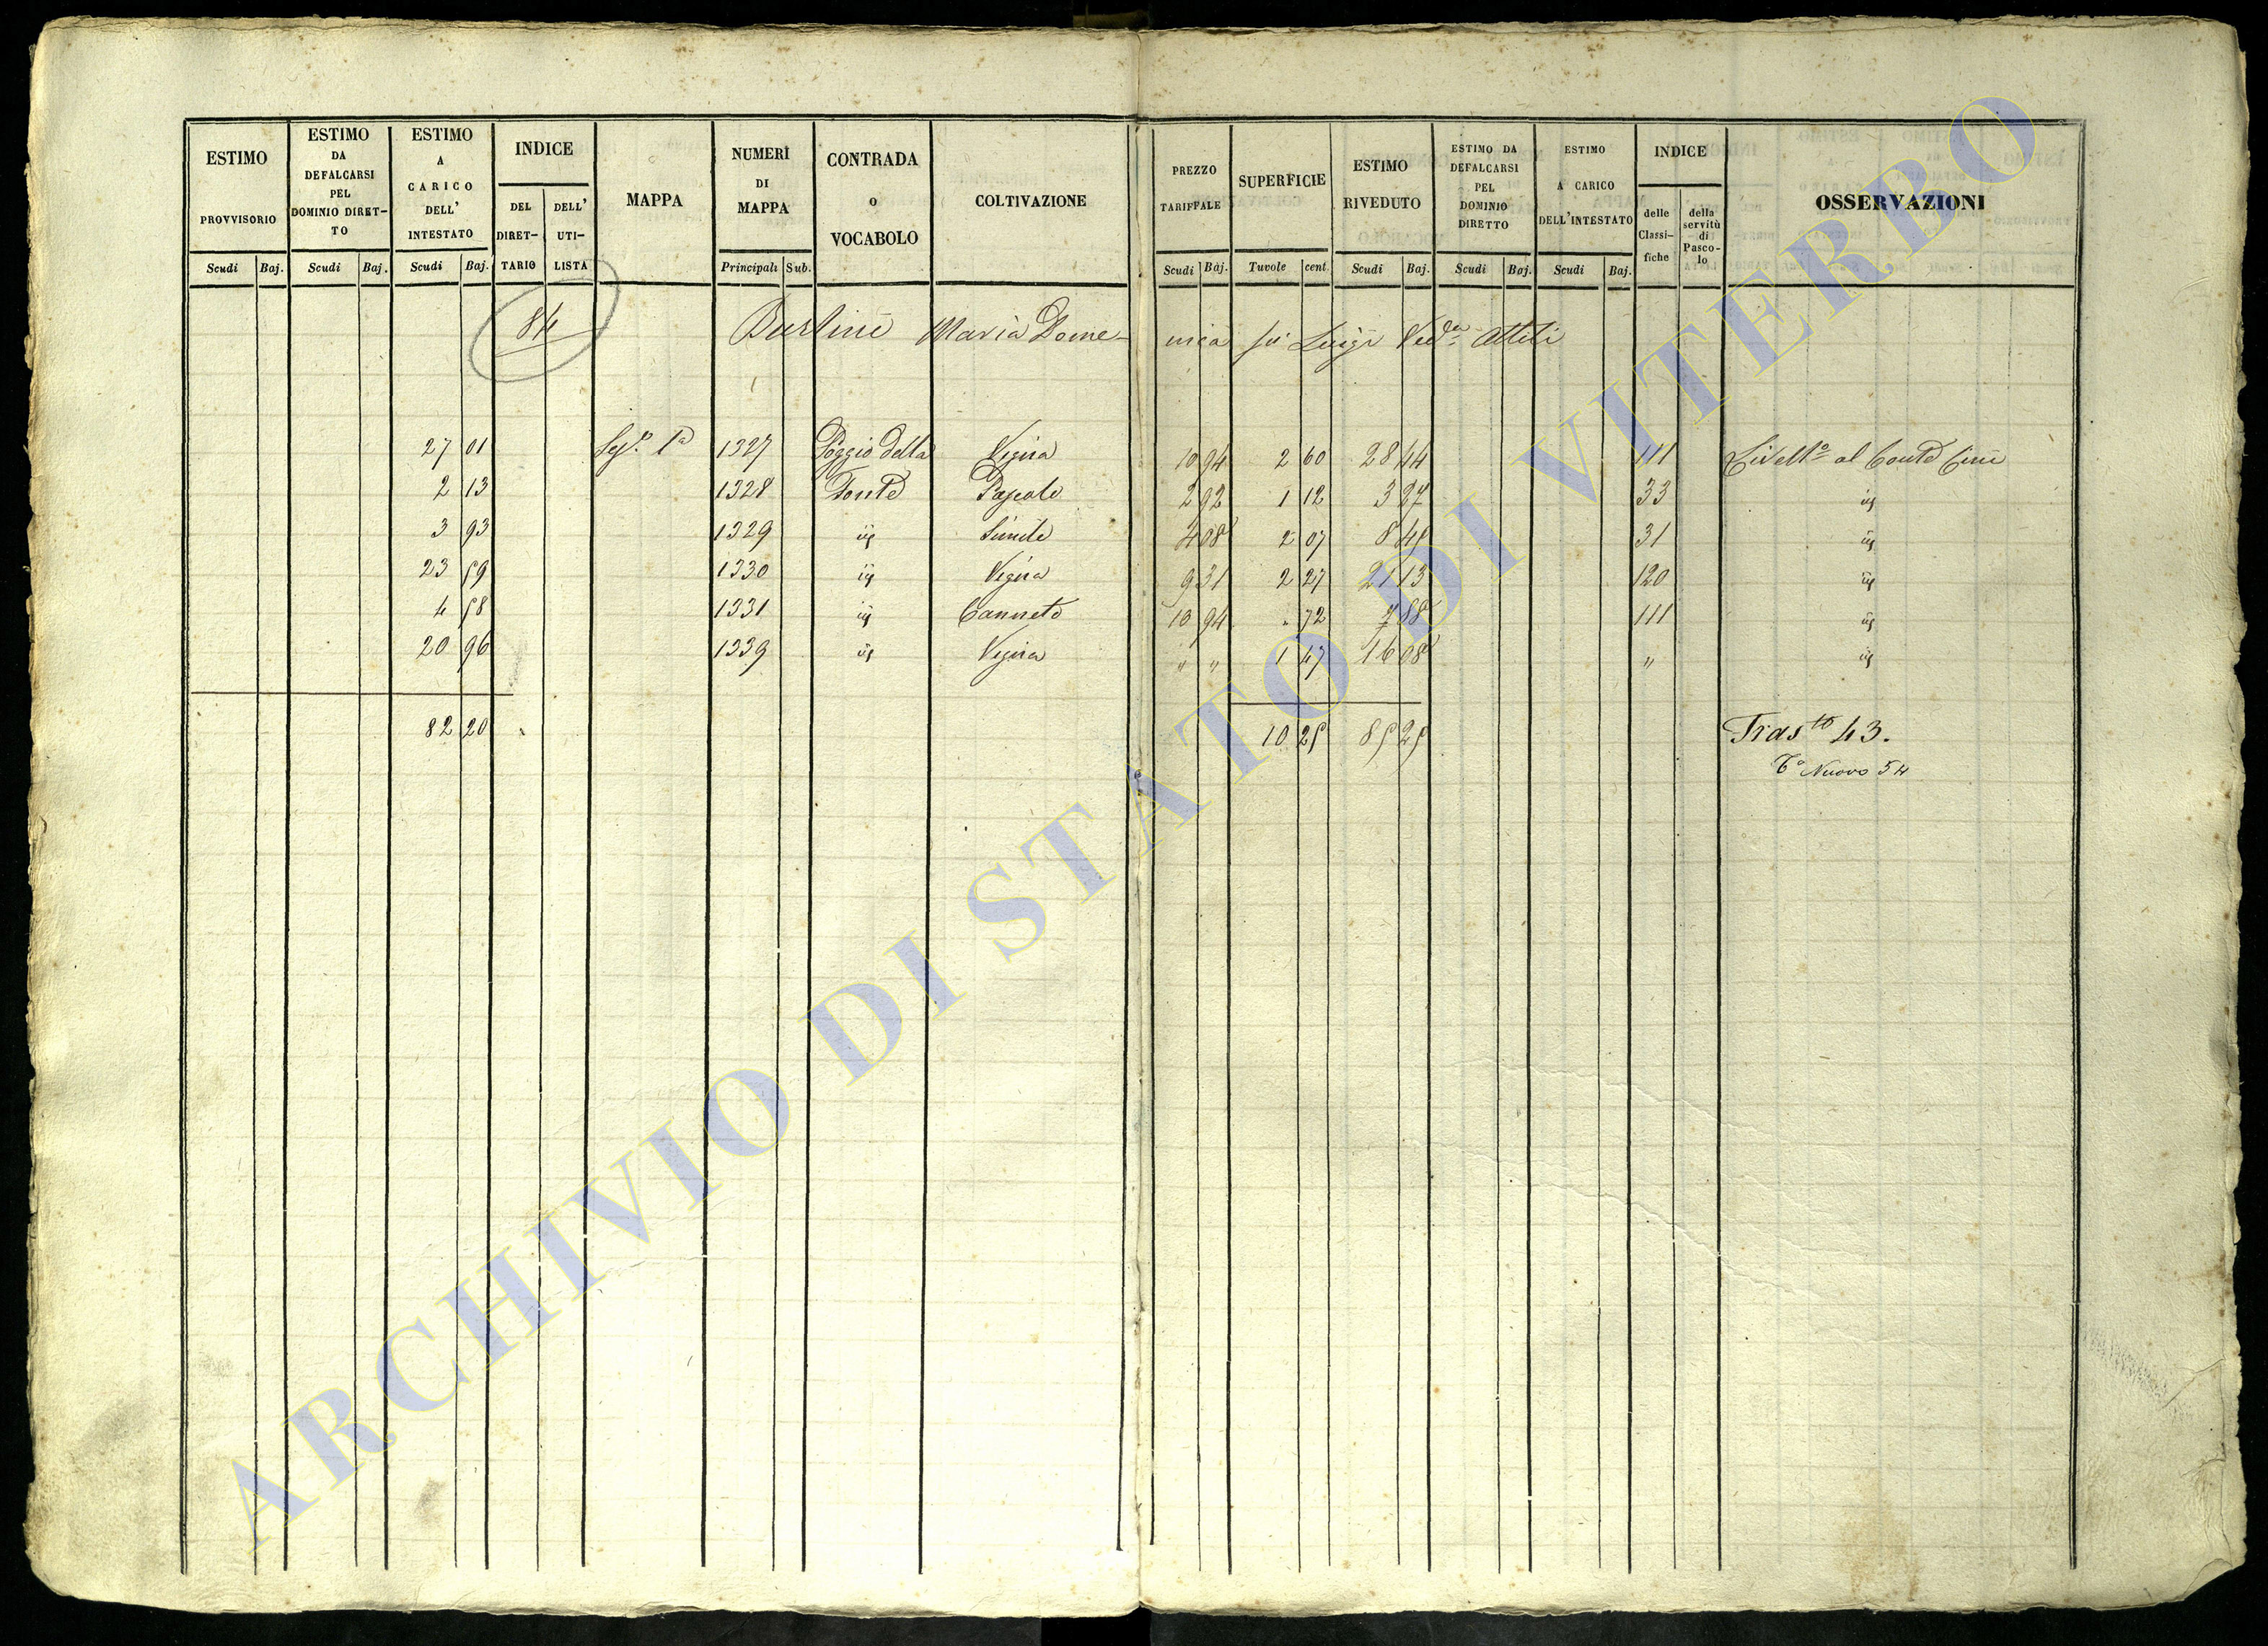 ESTIMO PROVVISORIO Scudi Baj.
ESTIMO DA DEFALCARSI PEL DOMINIO DIRET- TO Scudi Baj.
ESTIMO A CARICO DELL' INTESTATO Scudi Baj.
INDICE DEL DIRET- TARIO DELL' UTI- LISTA
MAPPA
NUMERI DI MAPPA Principali Sub.
CONTRADA o VOCABOLO
COLTIVAZIONE
PREZZO TARIFFALE Scudi Baj.
SUPERFICIE Tavole cent
ESTIMO RIVEDUTO Scudi Baj.
ESTIMO DA DEFALCARSI PEL DOMINIO DIRETTO Scudi Baj.
ESTIMO A CARICO DELL'INTESTATO Scudi Baj.
INDICE delle Classi- fiche della servitù di Pasco- lo
OSSERVAZIONI
84 Burlini Maria Dome- nica fù Luigi Ved.a Attili
27 01 Sez.e 1a 1327 Poggio della Vigna 10 94 2 60 28 44 111 Livell.o al Conte Cini
2 13 1328 Fonte Pascolo 2 92 1 12 3 27 33 id
3 93 1329 id Simile 4 08 2 07 8 45 31 id
23 59 1330 id Vigna 9 31 2 27 21 13 120 id
4 58 1331 id Canneto 10 94 . 72 7 88 111 id
20 96 1339 id Vigna " " 1 47 16 08 " id
82 20 10 25 85 25 Tras.to 43.
T.o Nuovo 54
ARCHIVIO DI STATO DI VITERBO